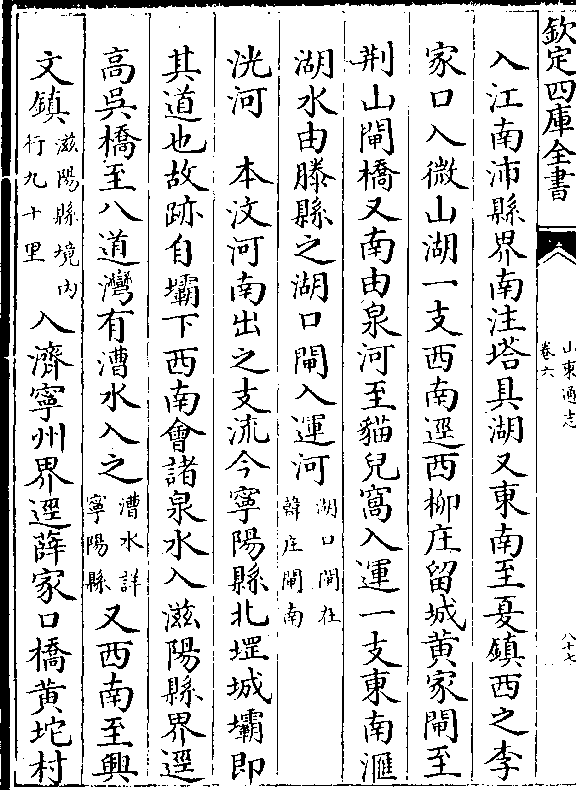 欽定四庫全書
山東通志
卷六
八十七
入江南沛縣界南注塔具湖又東南至夏鎮西之李
家口入微山湖一支西南逕西柳庄留城黄家閘至
荆山閘橋又南由泉河至貓兒窩入運一支東南滙
湖水由滕縣之湖口閘入運河湖口閘在
韓庄閘南
洸河　本汶河南出之支流今寧陽縣北堽城壩即
其道也故跡自壩下西南會諸泉水入滋陽縣界逕
高吳橋至八道灣有漕水入之漕水詳
寧陽縣又西南至興
文鎮滋陽縣境内
行九十里入濟寧州界逕薛家口橋黄坨村